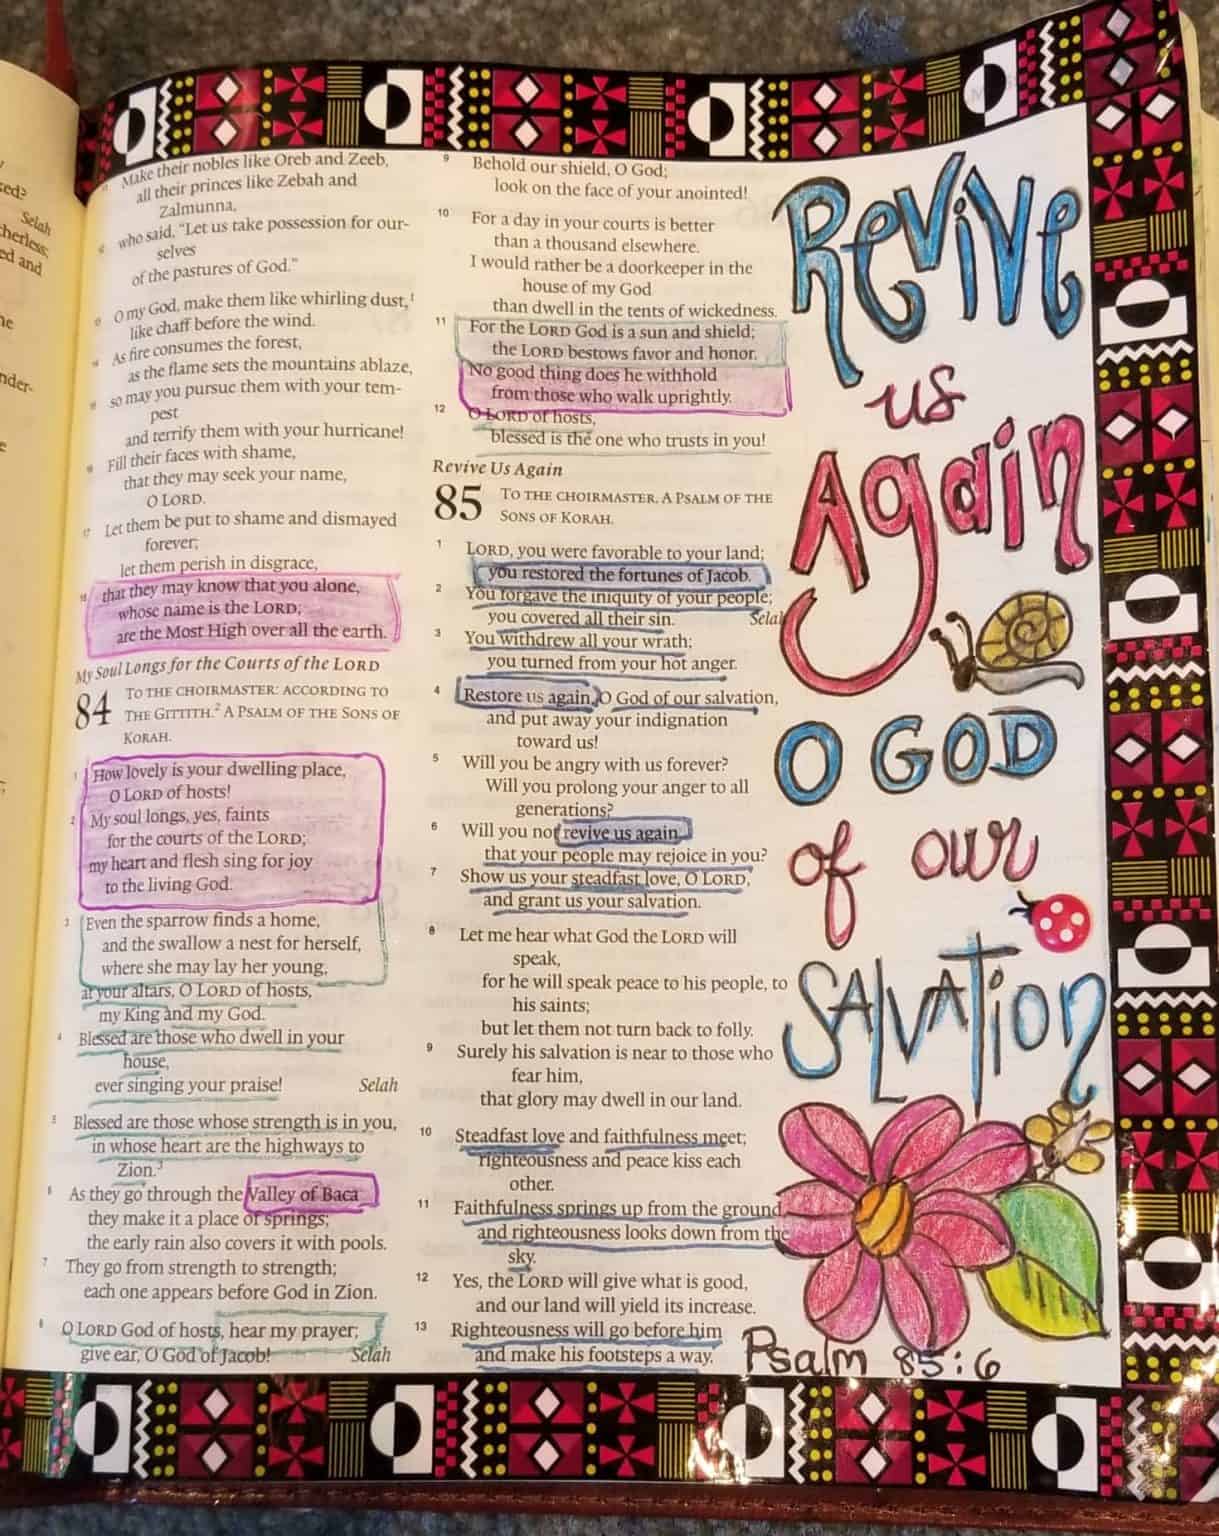 sed?
Selah
therless;
ed and
11 Make their nobles like Oreb and Zeeb,
all their princes like Zebah and
Zalmunna,
12 who said, "Let us take possession for our-
selves
of the pastures of God."
13 O my God, make them like whirling dust,1
like chaff before the wind.
14 As fire consumes the forest,
as the flame sets the mountains ablaze,
15 so may you pursue them with your tem-
pest
and terrify them with your hurricane!
16 Fill their faces with shame,
that they may seek your name,
O LORD.
17 Let them be put to shame and dismayed
forever;
let them perish in disgrace,
18 that they may know that you alone,
whose name is the LORD,
are the Most High over all the earth.
My Soul Longs for the Courts of the LORD
84 TO THE CHOIRMASTER: ACCORDING TO
THE GITTITH.2 A PSALM OF THE SONS OF
KORAH.
1 How lovely is your dwelling place,
O LORD of hosts!
2 My soul longs, yes, faints
for the courts of the LORD;
my heart and flesh sing for joy
to the living God.
3 Even the sparrow finds a home,
and the swallow a nest for herself,
where she may lay her young,
at your altars, O LORD of hosts,
my King and my God.
4 Blessed are those who dwell in your
house,
ever singing your praise! Selah
5 Blessed are those whose strength is in you,
in whose heart are the highways to
Zion.3
6 As they go through the Valley of Baca
they make it a place of springs;
the early rain also covers it with pools.
7 They go from strength to strength;
each one appears before God in Zion.
8 O LORD God of hosts, hear my prayer;
give ear, O God of Jacob! Selah
9 Behold our shield, O God;
look on the face of your anointed!
10 For a day in your courts is better
than a thousand elsewhere.
I would rather be a doorkeeper in the
house of my God
than dwell in the tents of wickedness.
11 For the LORD God is a sun and shield;
the LORD bestows favor and honor.
No good thing does he withhold
from those who walk uprightly.
12 O LORD of hosts,
blessed is the one who trusts in you!
Revive Us Again
85 TO THE CHOIRMASTER. A PSALM OF THE
SONS OF KORAH.
1 LORD, you were favorable to your land;
you restored the fortunes of Jacob.
2 You forgave the iniquity of your people;
you covered all their sin. Selah
3 You withdrew all your wrath;
you turned from your hot anger.
4 Restore us again, O God of our salvation,
and put away your indignation
toward us!
5 Will you be angry with us forever?
Will you prolong your anger to all
generations?
6 Will you not revive us again,
that your people may rejoice in you?
7 Show us your steadfast love, O LORD,
and grant us your salvation.
8 Let me hear what God the LORD will
speak,
for he will speak peace to his people, to
his saints;
but let them not turn back to folly.
9 Surely his salvation is near to those who
fear him,
that glory may dwell in our land.
10 Steadfast love and faithfulness meet;
righteousness and peace kiss each
other.
11 Faithfulness springs up from the ground,
and righteousness looks down from the
sky.
12 Yes, the LORD will give what is good,
and our land will yield its increase.
13 Righteousness will go before him
and make his footsteps a way.
Revive
us
Again
O GOD
of our
SALVATION
Psalm 85:6